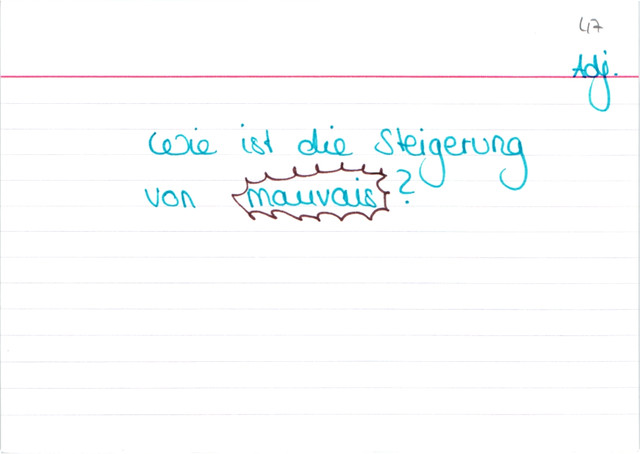 47
Adj.
Wie ist die Steigerung
von mauvais?